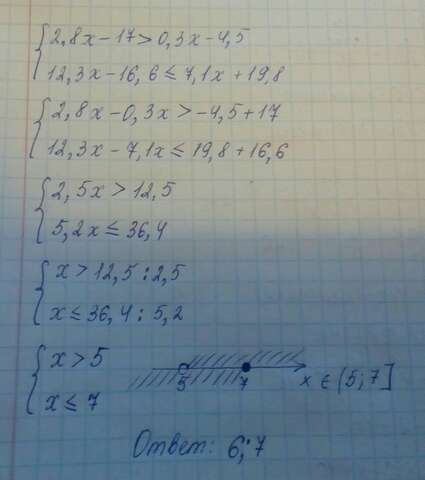 2,8x-17>0,3x-4,5
12,3x-16,6≤7,1x+19,8
2,8x-0,3x>-4,5+17
12,3x-7,1x≤19,8+16,6
2,5x>12,5
5,2x≤36,4
x>12,5:2,5
x≤36,4:5,2
x>5
5 7 x ∈ (5;7]
x≤7
Ответ: 6;7